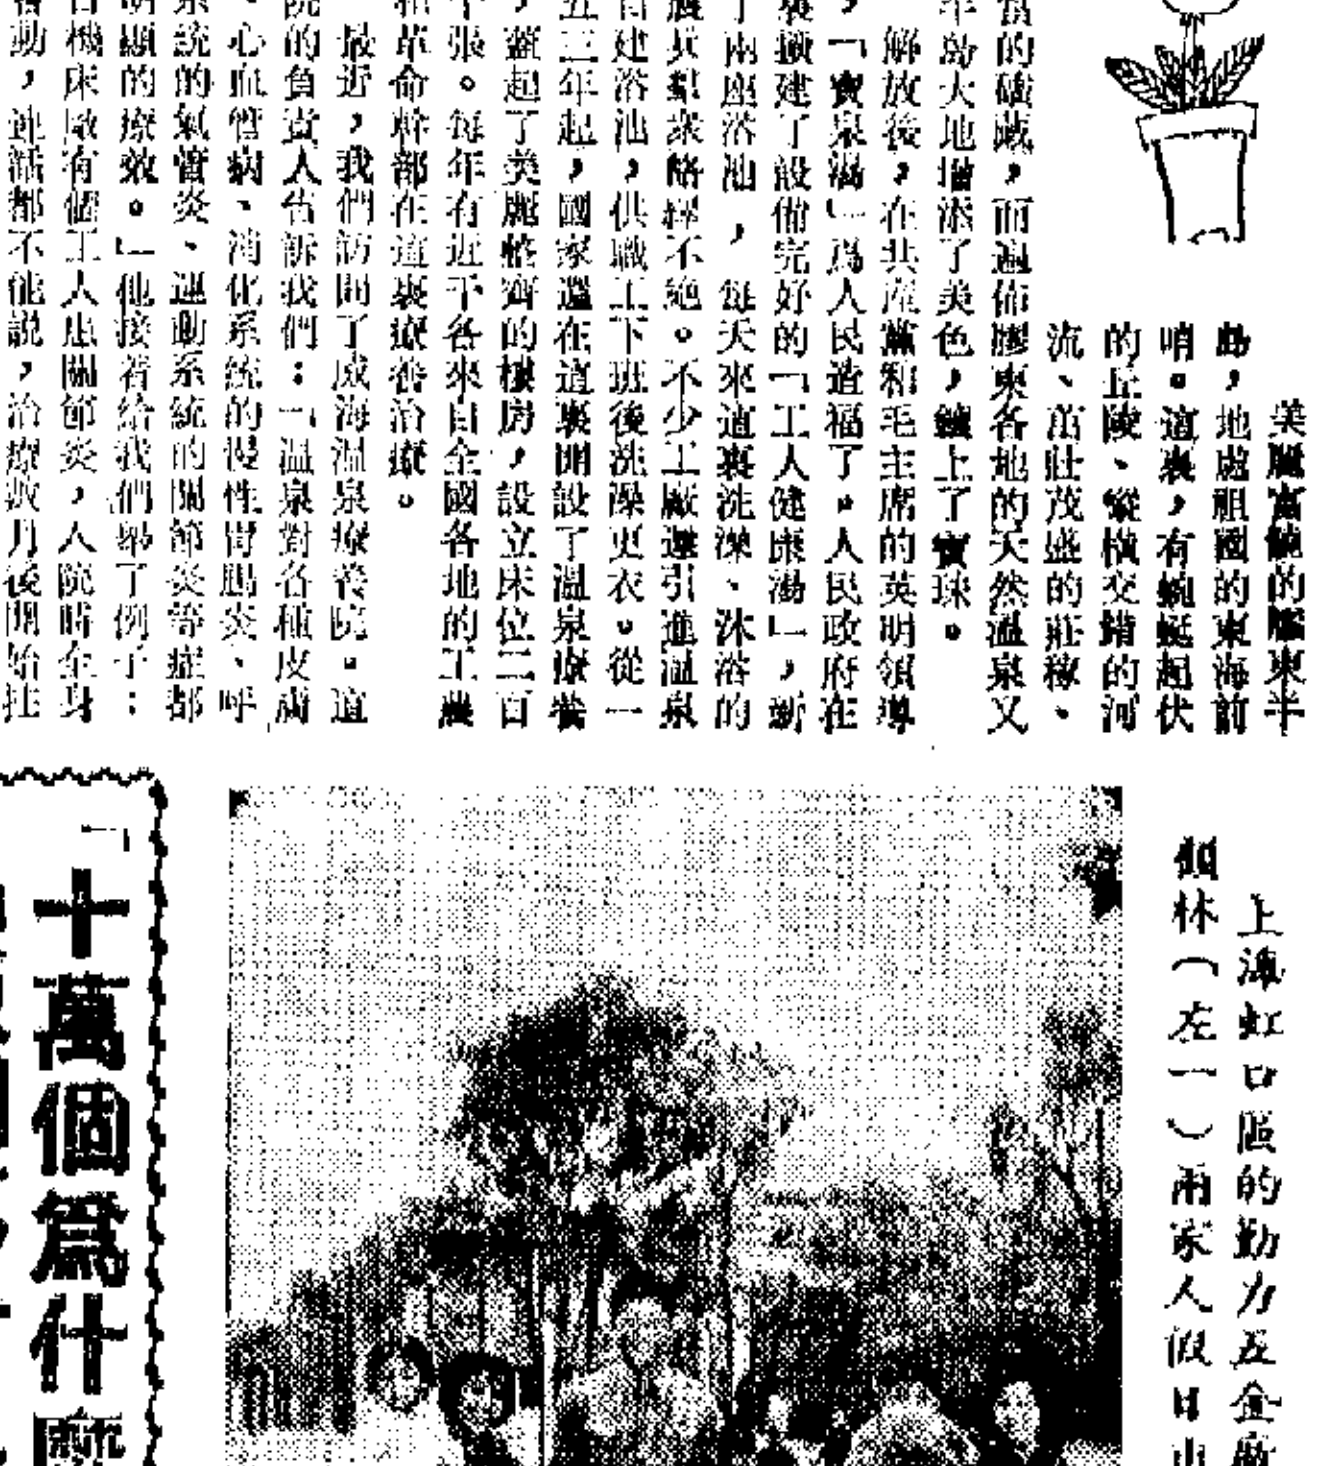 美麗富饒的膠東半
島，地處祖國的東海前
哨。這裏，有蜿蜒起伏
的丘陵、縱橫交錯的河
流、茁壯茂盛的莊稼、
富的礦藏，而遍佈膠東各地的天然溫泉又
島大地增添了美色，鑲上了寶珠。
解放後，在共產黨和毛主席的英明領導
，「寶泉湯」爲人民造福了。人民政府在
裏擴建了設備完好的「工人健康湯」，新
了兩座浴池，每天來這裏洗澡、沐浴的
農兵羣衆絡繹不絕。不少工廠還引進溫泉
自建浴池，供職工下班後洗澡更衣。從一
五三年起，國家還在這裏開設了溫泉療養
，蓋起了美麗整齊的樓房，設立床位二百
張。每年有近千名來自全國各地的工農
和革命幹部在這裏療養治療。
最近，我們訪問了威海溫泉療養院。這
院的負責人告訴我們：「溫泉對各種皮膚
、心血管病、消化系統的慢性胃腸炎、呼
系統的氣管炎、運動系統的關節炎等症都
明顯的療效。」他接着給我們舉了例子：
機床廠有個工人患關節炎，入院時全身
動，連話都不能說，治療數月後開始拄
上海虹口區的勤力五金廠
林（左一）兩家人假日
「十萬個爲什麼